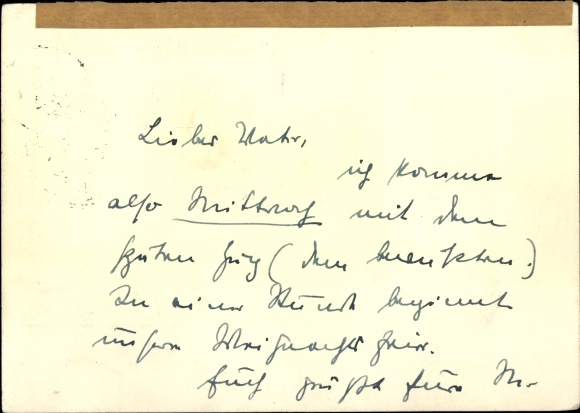 Lieber Vater,
ich komme
also Mittwoch mit dem
späten Zug (dem bewußten.)
In einer Stunde beginnt
unsere Weihnachtsfeier.
Euch grüßt Eure M.